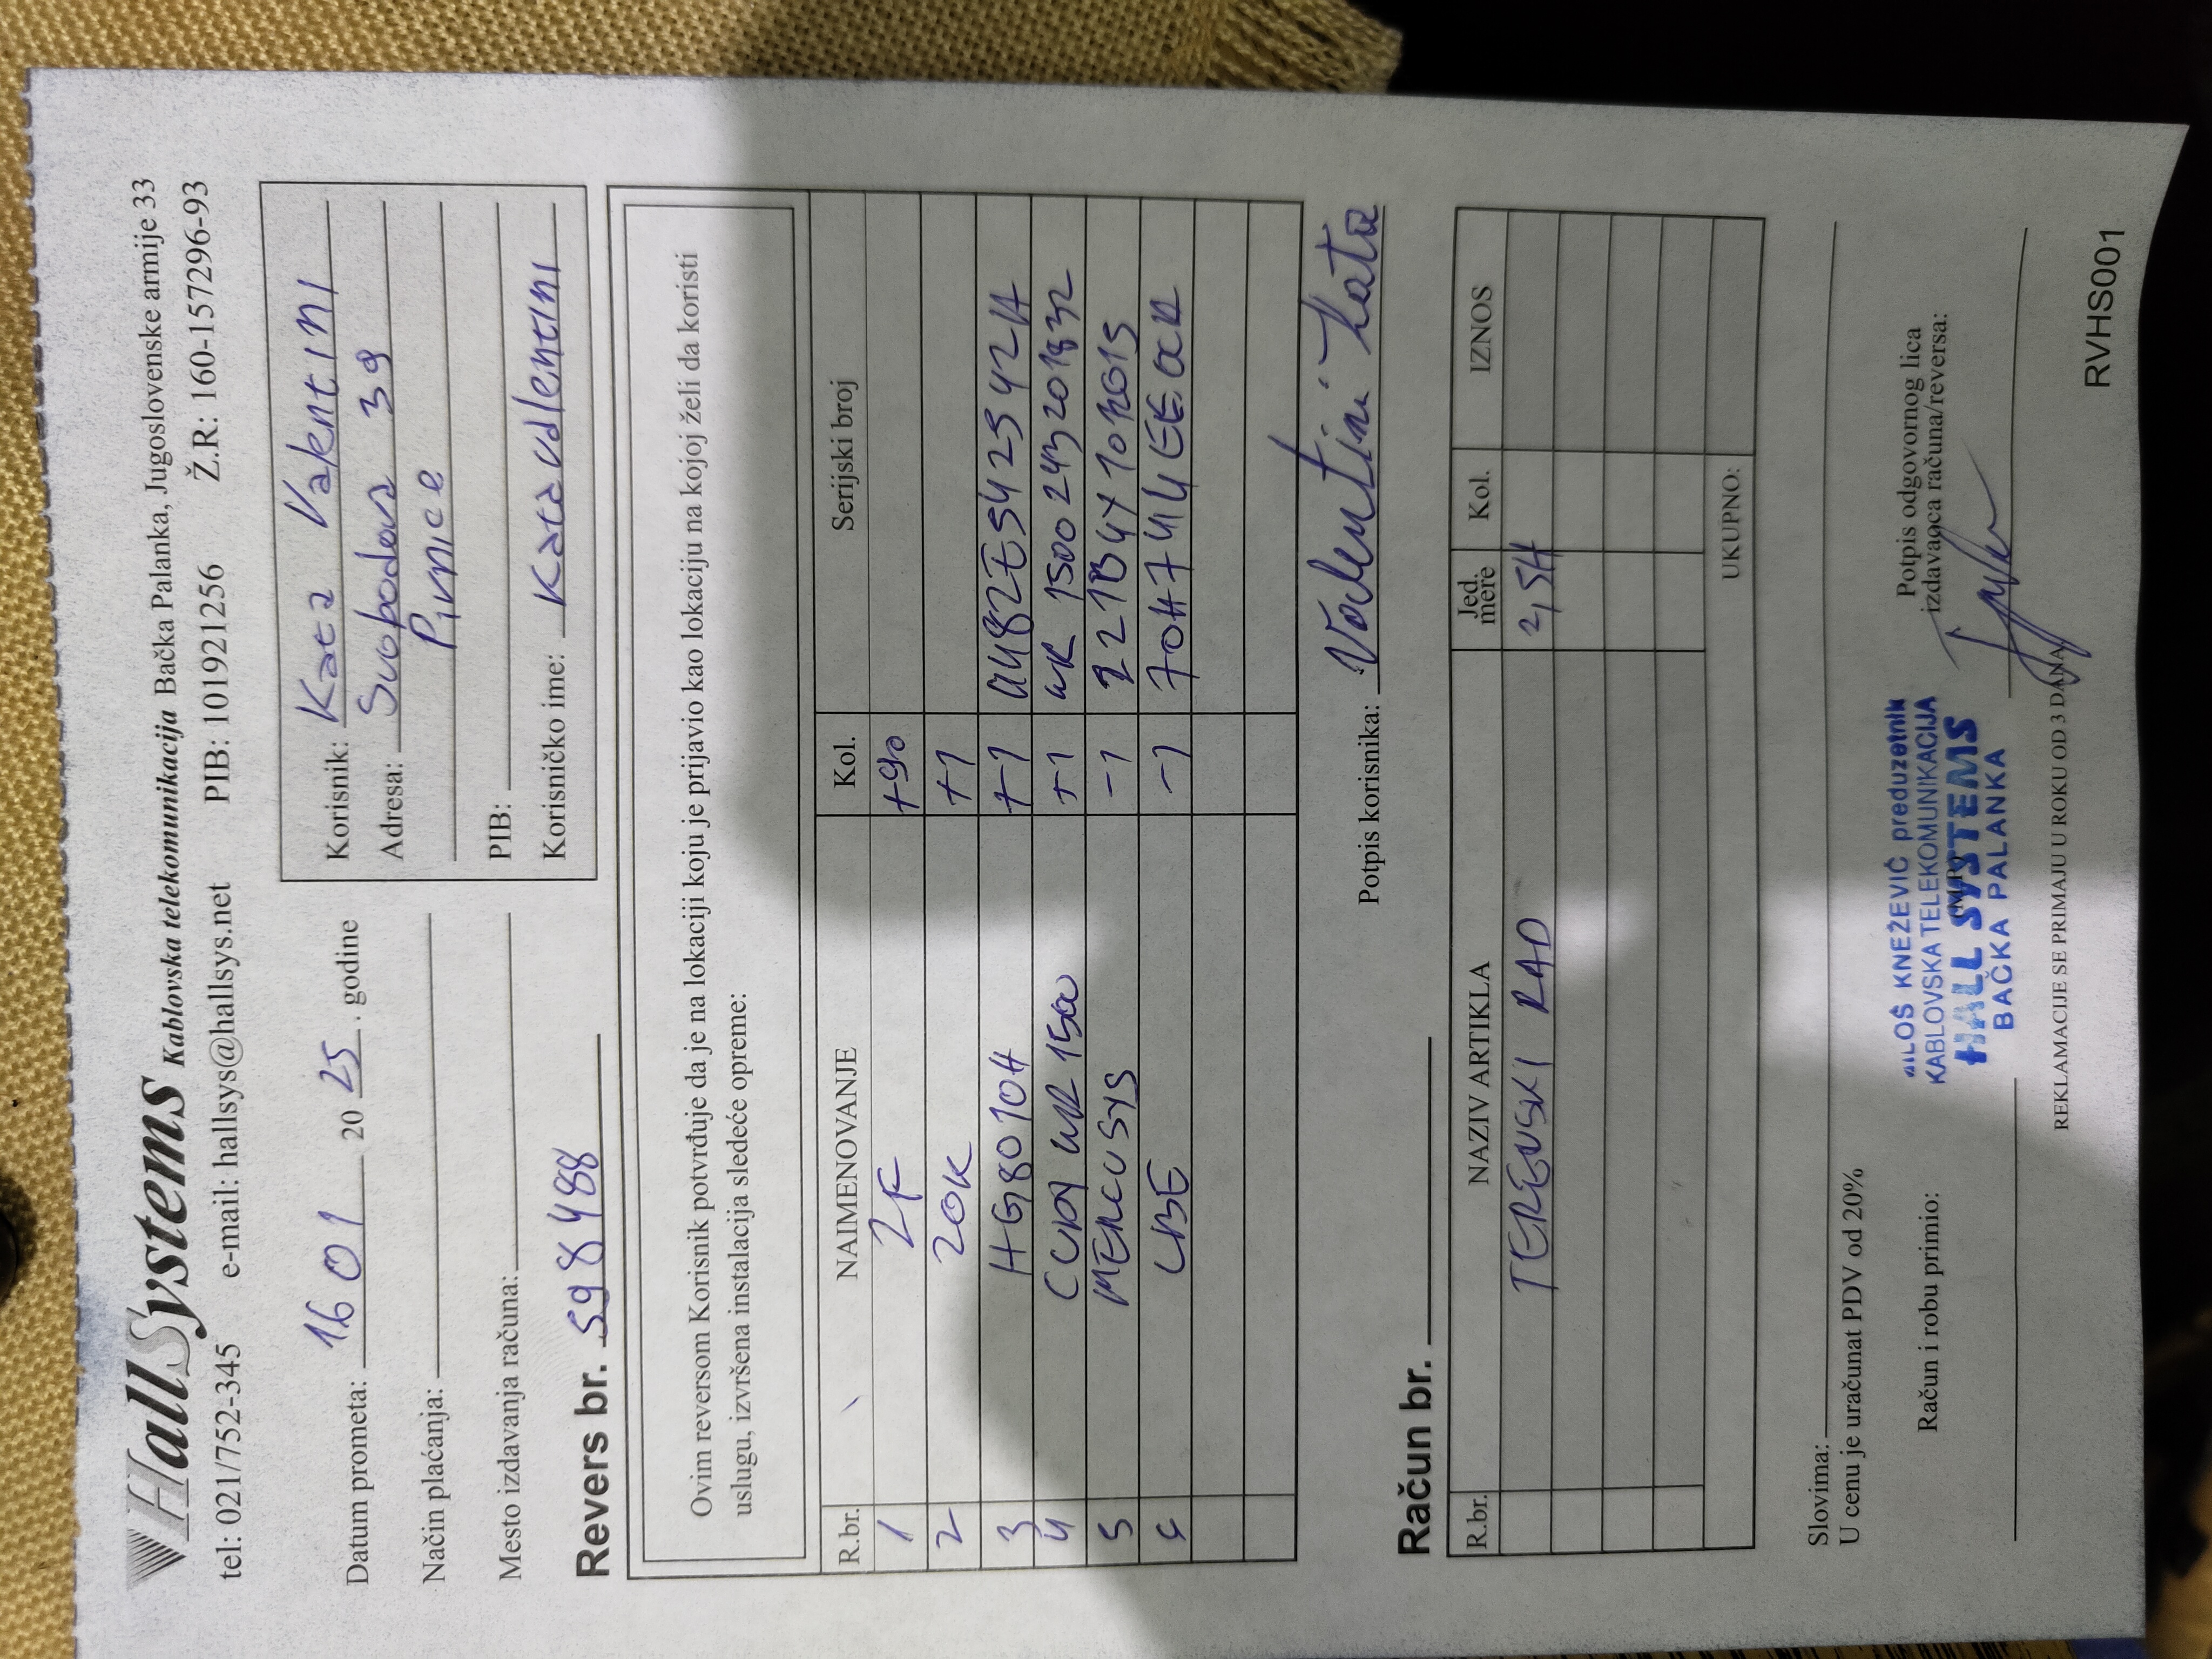 HallSystems Kablovska telekomunikacija Bačka Palanka, Jugoslovenske armije 33
tel: 021/752-345 e-mail: hallsys@hallsys.net PIB: 101921256 Ž.R: 160-157296-93
Datum prometa: 16 01 20 25. godine
Način plaćanja:
Mesto izdavanja računa:
Korisnik: Kata Valentini
Adresa: Svobodova 39
Pivnice
PIB:
Korisničko ime: Katavalentini
Revers br. 598488
Ovim reversom Korisnik potvrđuje da je na lokaciji koju je prijavio kao lokaciju na kojoj želi da koristi
uslugu, izvršena instalacija sledeće opreme:
R.br. NAIMENOVANJE Kol. Serijski broj
1 2F +90
2 20K +1
3 HG8010H +1
4 WR 1500 +1
5 MERCUSYS -1
LBE -1
Potpis korisnika: Valentini Kata
Račun br.
R.br. NAZIV ARTIKLA Jed. mere Kol. IZNOS
TERENSKI RAD 2,5H
UKUPNO:
Slovima:
U cenu je uračunat PDV od 20%
Račun i robu primio:
MILOŠ KNEŽEVIĆ preduzetnik
KABLOVSKA TELEKOMUNIKACIJA
HALL SYSTEMS
BAČKA PALANKA
Potpis odgovornog lica
izdavaoca računa/reversa:
REKLAMACIJE SE PRIMAJU U ROKU OD 3 DANA
RVHS001